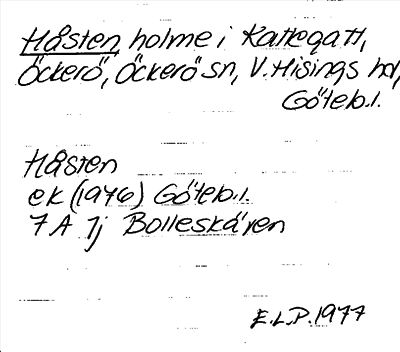 Håsten, holme i Kattegatt,
Öckerö, Öckerö sn, V. Hisings hd,
Göteb.l.
Håsten
ek (1976) Göteb.l.
7 A 1j Bolleskären
E.L.P. 1977